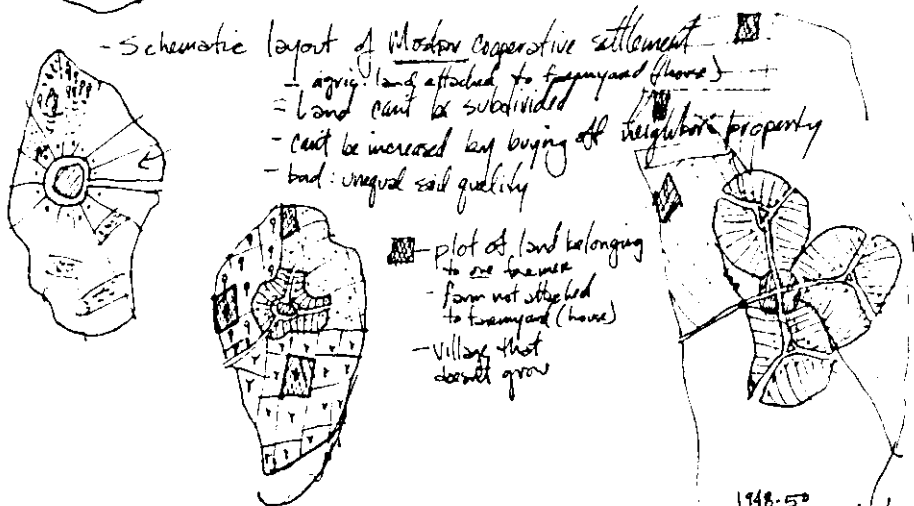 - Schematic layout of Moshav cooperative settlement
- agric. land attached to farmyard (house)
= Land can't be subdivided
- can't be increased by buying off neighbor's property
- bad: unequal soil quality
- plot of land belonging
to one farmer
- farm not attached
to farmyard (house)
- village that
doesn't grow
1948-50